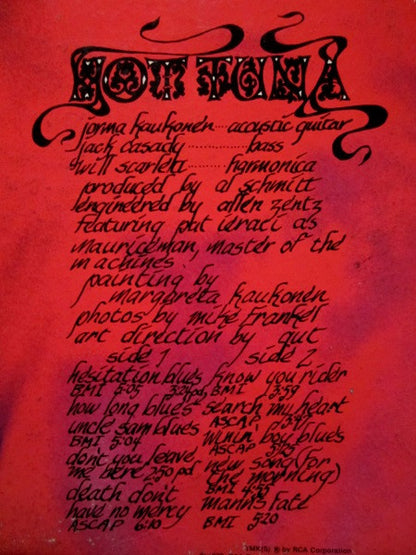 HOT TUNA
jorma kaukonen....acoustic guitar
jack casady..........bass
will scarlett..........harmonica
produced by al schmitt
engineered by allen zentz
featuring pat ieraci as
mauriceman, master of the
machines
painting by
margareta kaukonen
photos by mike frankel
art direction by gut
side 1 side 2
hesitation blues know you rider
BMI 5:05 BMI 3:59
how long blues search my heart
ASCAP
uncle sam blues winin' boy blues
BMI 5:04 ASCAP 5:25
don't you leave new song (for
me here 2:50 pd the morning)
death don't BMI 4:59
have no mercy mann's fate
ASCAP 6:10 BMI 5:20
TMK(S) ® by RCA Corporation